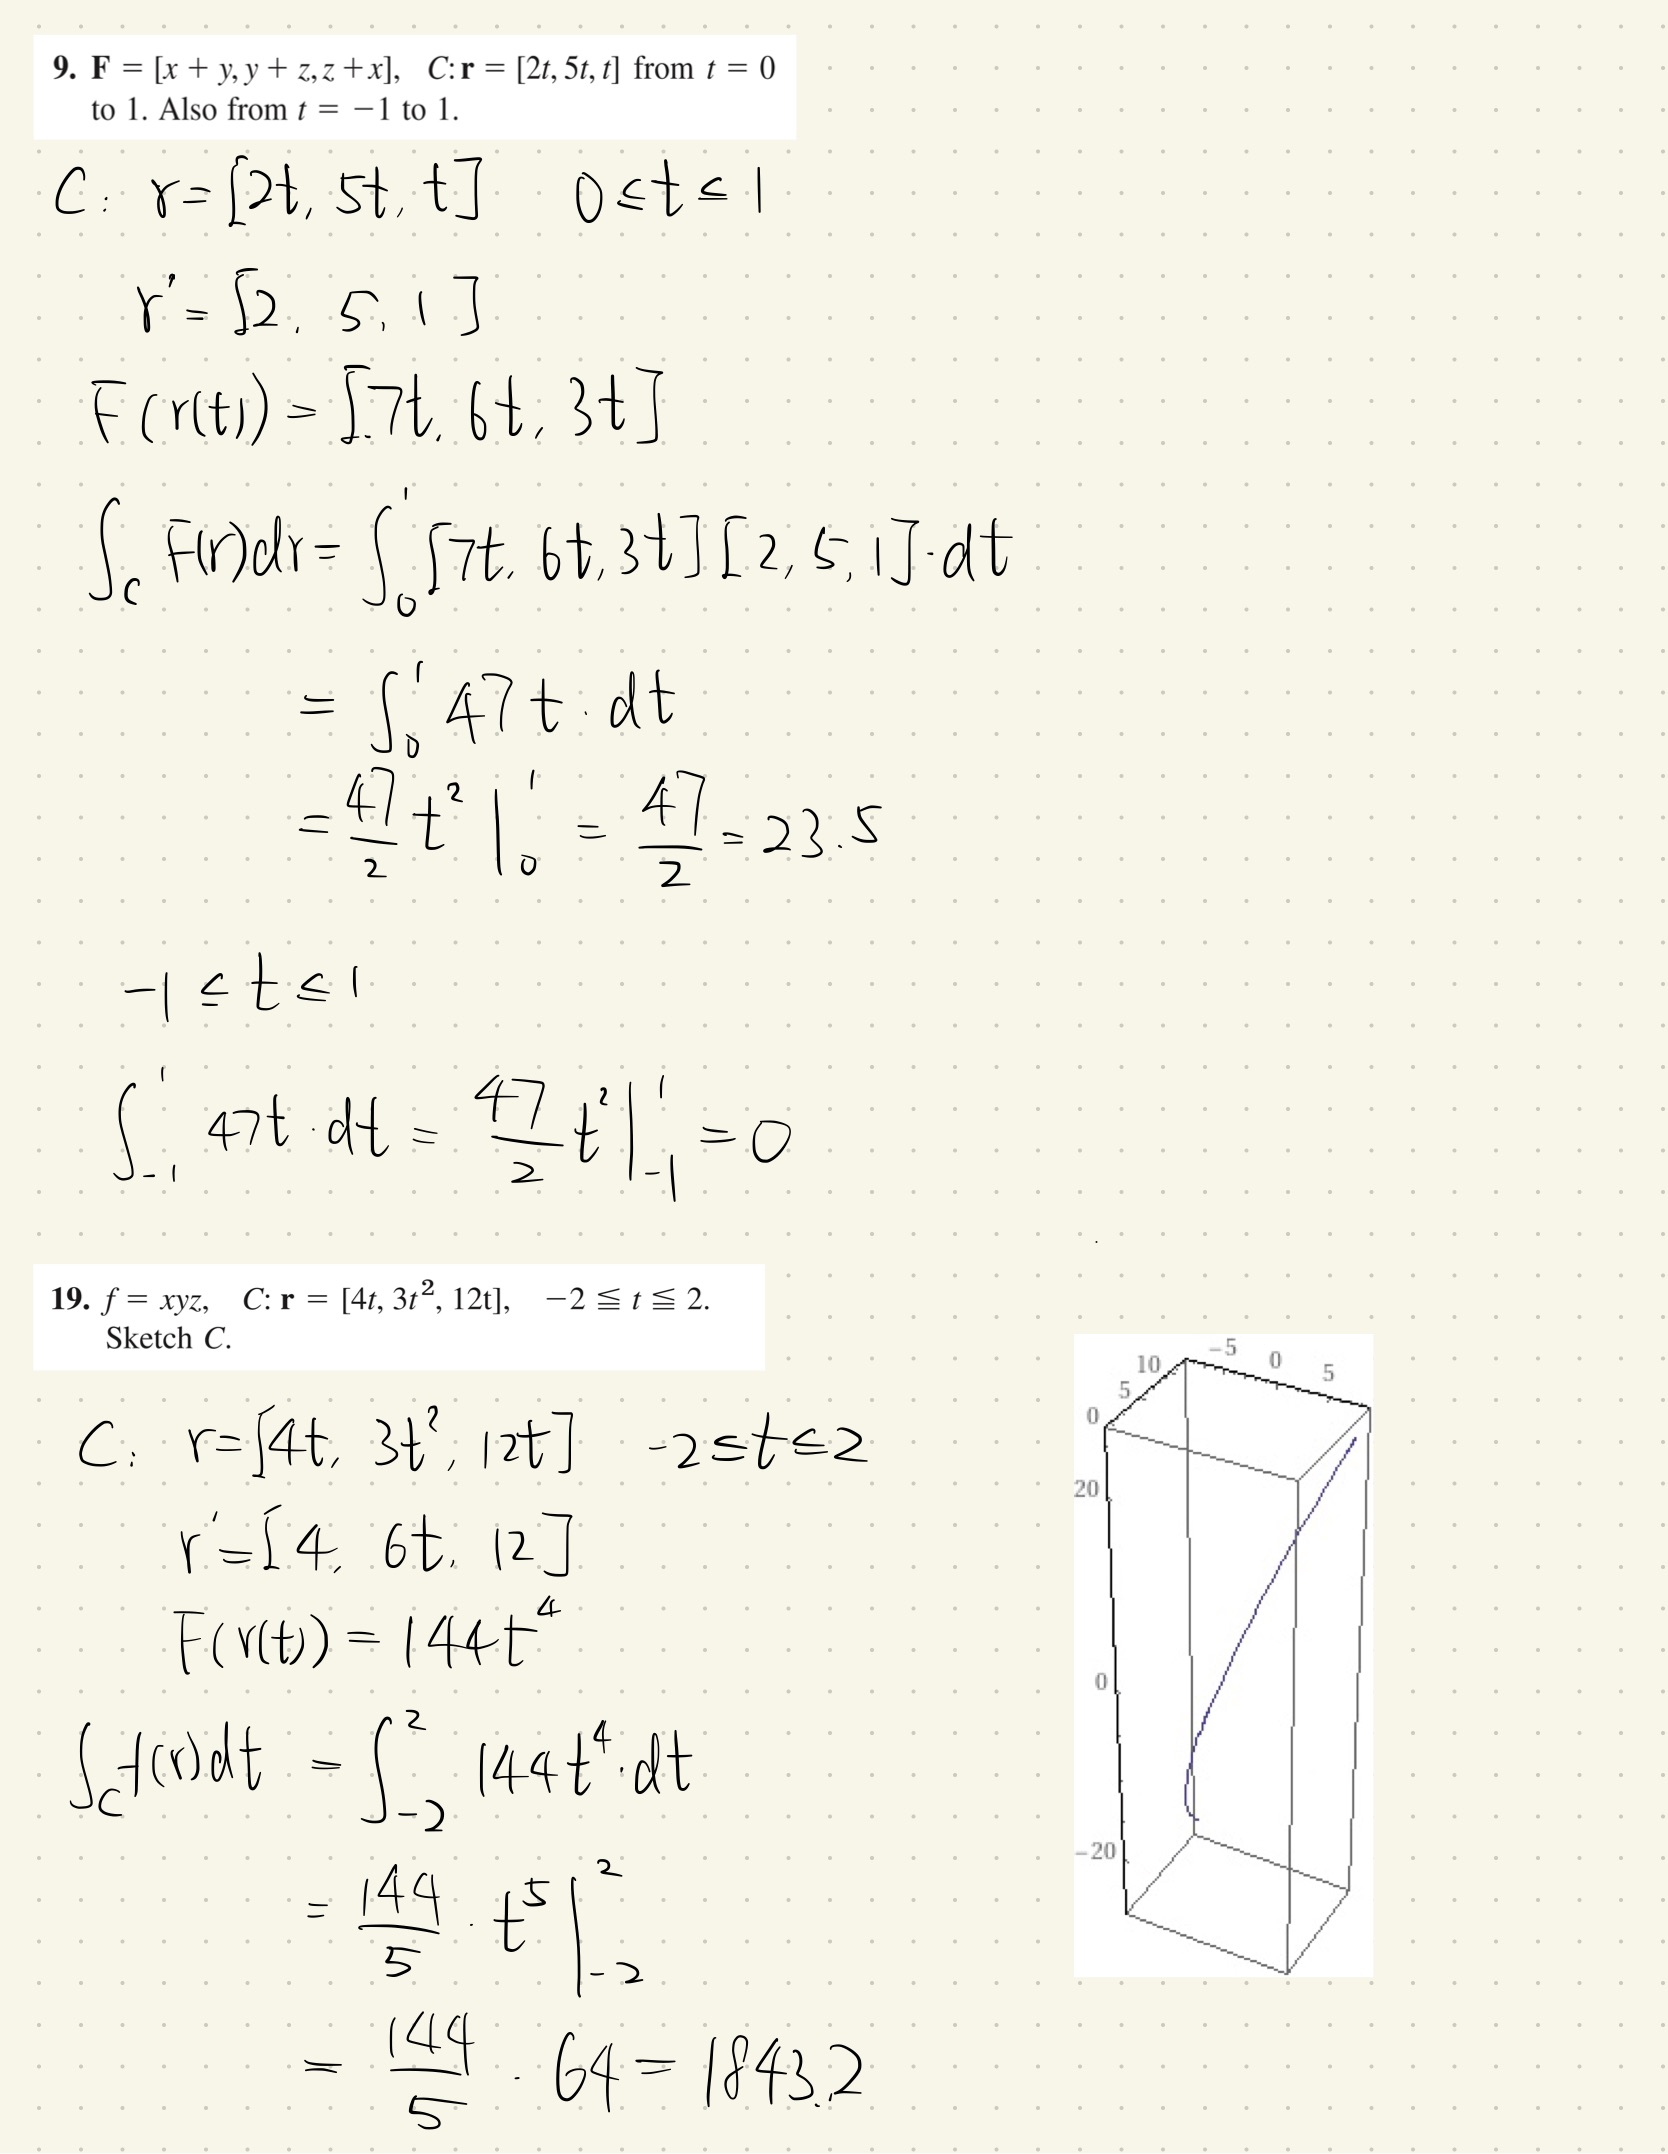 9. F = [x + y, y + z, z + x], C: r = [2t, 5t, t] from t = 0
to 1. Also from t = −1 to 1.
C: r = [2t, 5t, t] 0 ≤ t ≤ 1
r' = [2, 5, 1]
F(r(t)) = [7t, 6t, 3t]
∫_C F(r)dr = ∫_0^1 [7t, 6t, 3t][2, 5, 1]·dt
= ∫_0^1 47t·dt
= 47/2 t² |_0^1 = 47/2 = 23.5
-1 ≤ t ≤ 1
∫_{-1}^1 47t·dt = 47/2 t² |_{-1}^1 = 0
19. f = xyz, C: r = [4t, 3t², 12t], −2 ≦ t ≦ 2.
Sketch C.
C: r = [4t, 3t², 12t] -2 ≤ t ≤ 2
r' = [4, 6t, 12]
F(r(t)) = 144t⁴
∫_C f(r)dt = ∫_{-2}^2 144t⁴·dt
= 144/5 · t⁵ |_{-2}^2
= 144/5 · 64 = 1843.2
−5 0 5
10
5
0
20
0
−20